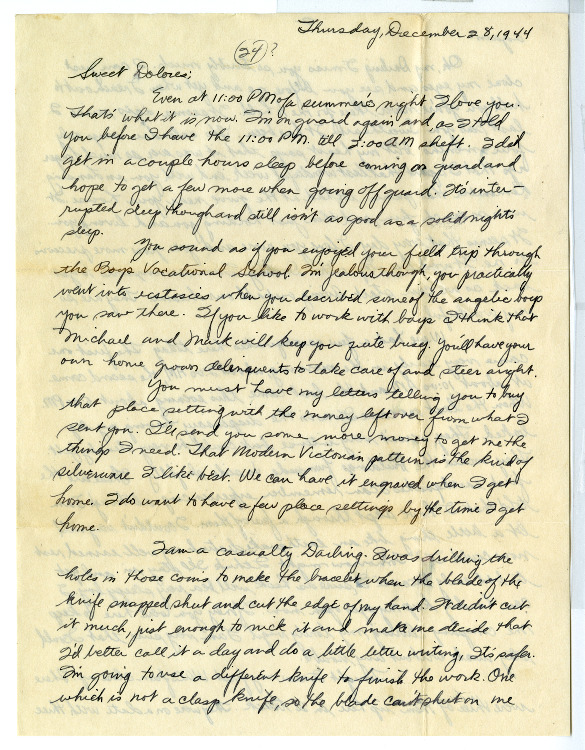 Thursday, December 28, 1944
24?
Sweet Dolores;
Even at 11:00 PM of a summer's night I love you.
That's what it is now. I'm on guard again and, as I told
you before I have the 11:00 P.M. till 3:00 AM shift. I did
get in a couple hours sleep before coming on guard and
hope to get a few more when going off guard. It's inter-
rupted sleep though and still isn't as good as a solid night's
sleep.
You sound as if you enjoyed your field trip through
the Boys Vocational School. I'm jealous though, you practically
went into ecstasies when you described some of the angelic boys
you saw there. If you like to work with boys I think that
Michael and Mark will keep you quite busy. You'll have your
own home grown delinquents to take care of and steer aright.
You must have my letters telling you to buy
that place setting with the money left over from what I
sent you. I'll send you some more money to get me the
things I need. That Modern Victorian pattern is the kind of
silverware I like best. We can have it engraved when I get
home. I do want to have a few place settings by the time I get
home.
I am a casualty Darling. I was drilling the
holes in those coins to make the bracelet when the blade of the
knife snapped shut and cut the edge of my hand. It didn't cut
it much, just enough to nick it and make me decide that
I'd better call it a day and do a little letter writing, It's safer.
I'm going to use a different knife to finish the work. One
which is not a clasp knife, so the blade can't shut on me